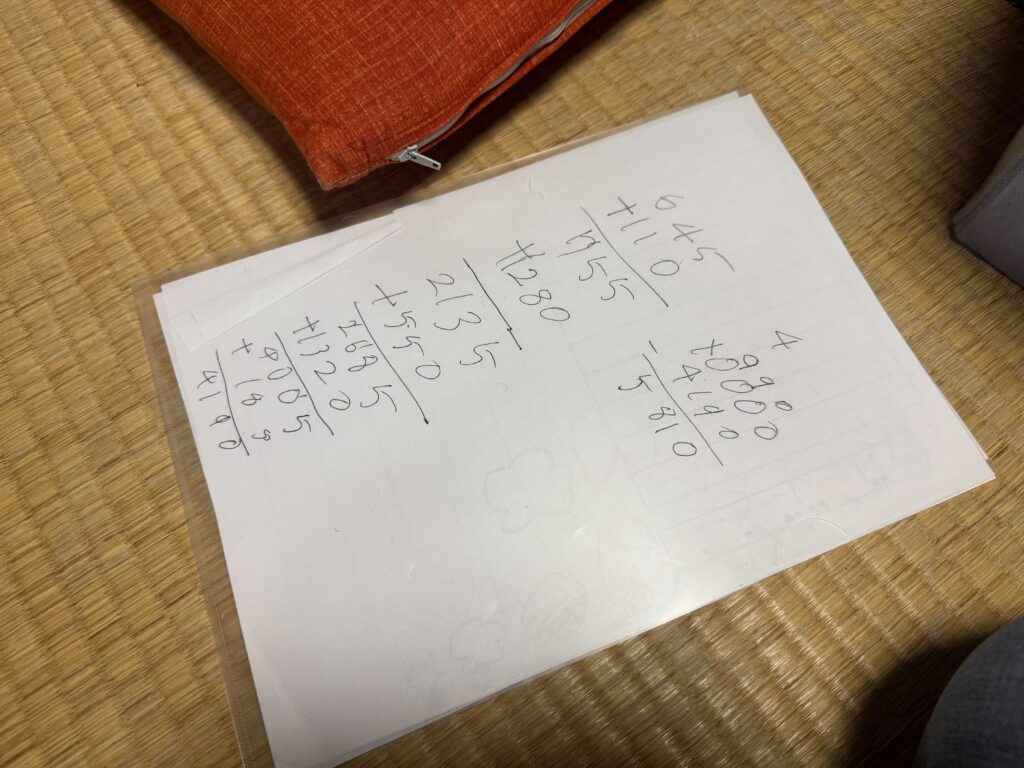 645
+110
755
+1280
2135
+550
2685
+1320
4005
+ 185
4190
10000
- 4190
5810